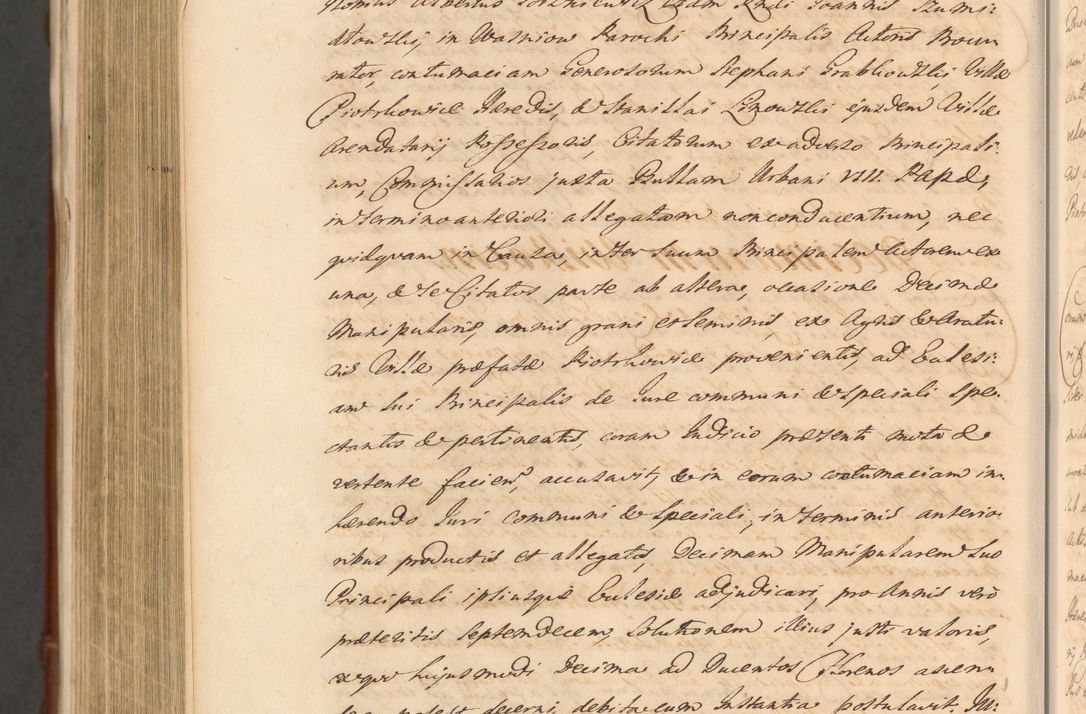 Albertus Rndi Joannis Szumi:
dłowski, in Wasniow Parochi Principalis Actoris Procu
rator, contumaciam Generosorum Stephani Grabkowski, Villæ
Piotrkowice Hæredis, & Stanislai Linowski ejusdem Villæ
Arendatarij Possessoris, Citatorum ex adverso Principali:
um, Commissarios juxta Bullam Urbani VIII. Papæ,
in Termino anteriori allegatam non conducentium, nec
quidquam in Causa, inter Suum Principalem Actorem ex
una, & se Citatos parte ab altera, occasione Decimæ
Manipularis, omnis grani et Seminis, ex Agris & Aratu:
ris Villæ præfatæ Piotrkowice provenientis, ad Ecclesi:
am Sui Principalis de Jure communi & Speciali Spe:
ctantis & pertinentis, coram Judicio præsenti mota &
vertente facien, accusavit, & in eorum contumaciam in:
hærendo Juri communi & Speciali, in Terminis anterio:
ribus productis et allegatis, Decimam Manipularem Suo
Principali ipsiusque Ecclesiæ adjudicari, pro Annis vero
præteritis Septemdecem, Solutionem illius justi valoris,
ex quo hujusmodi Decima ad Ducentos Florenos
potest decerni, debita cum Instantia postulavit. Ill: